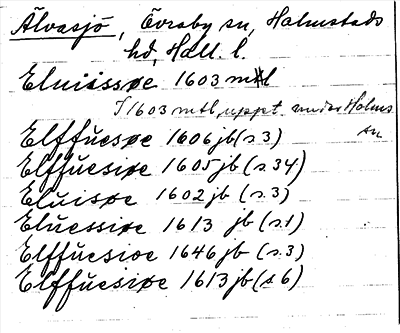 Älvasjö, Övraby sn, Halmstads
hd, Hall. l.
Eluiissøe 1603 mtl
I 1603 mtl uppt. under Holms
sn
Elffuesøe 1606 jb (s. 3)
Elffuesiøe 1605 jb (s. 34)
Eluisøe 1602 jb (s. 3)
Eluessiøe 1613 jb (s. 1)
Elffuesiøe 1646 jb (s. 3)
Elffuesiøe 1613 jb (s 6)